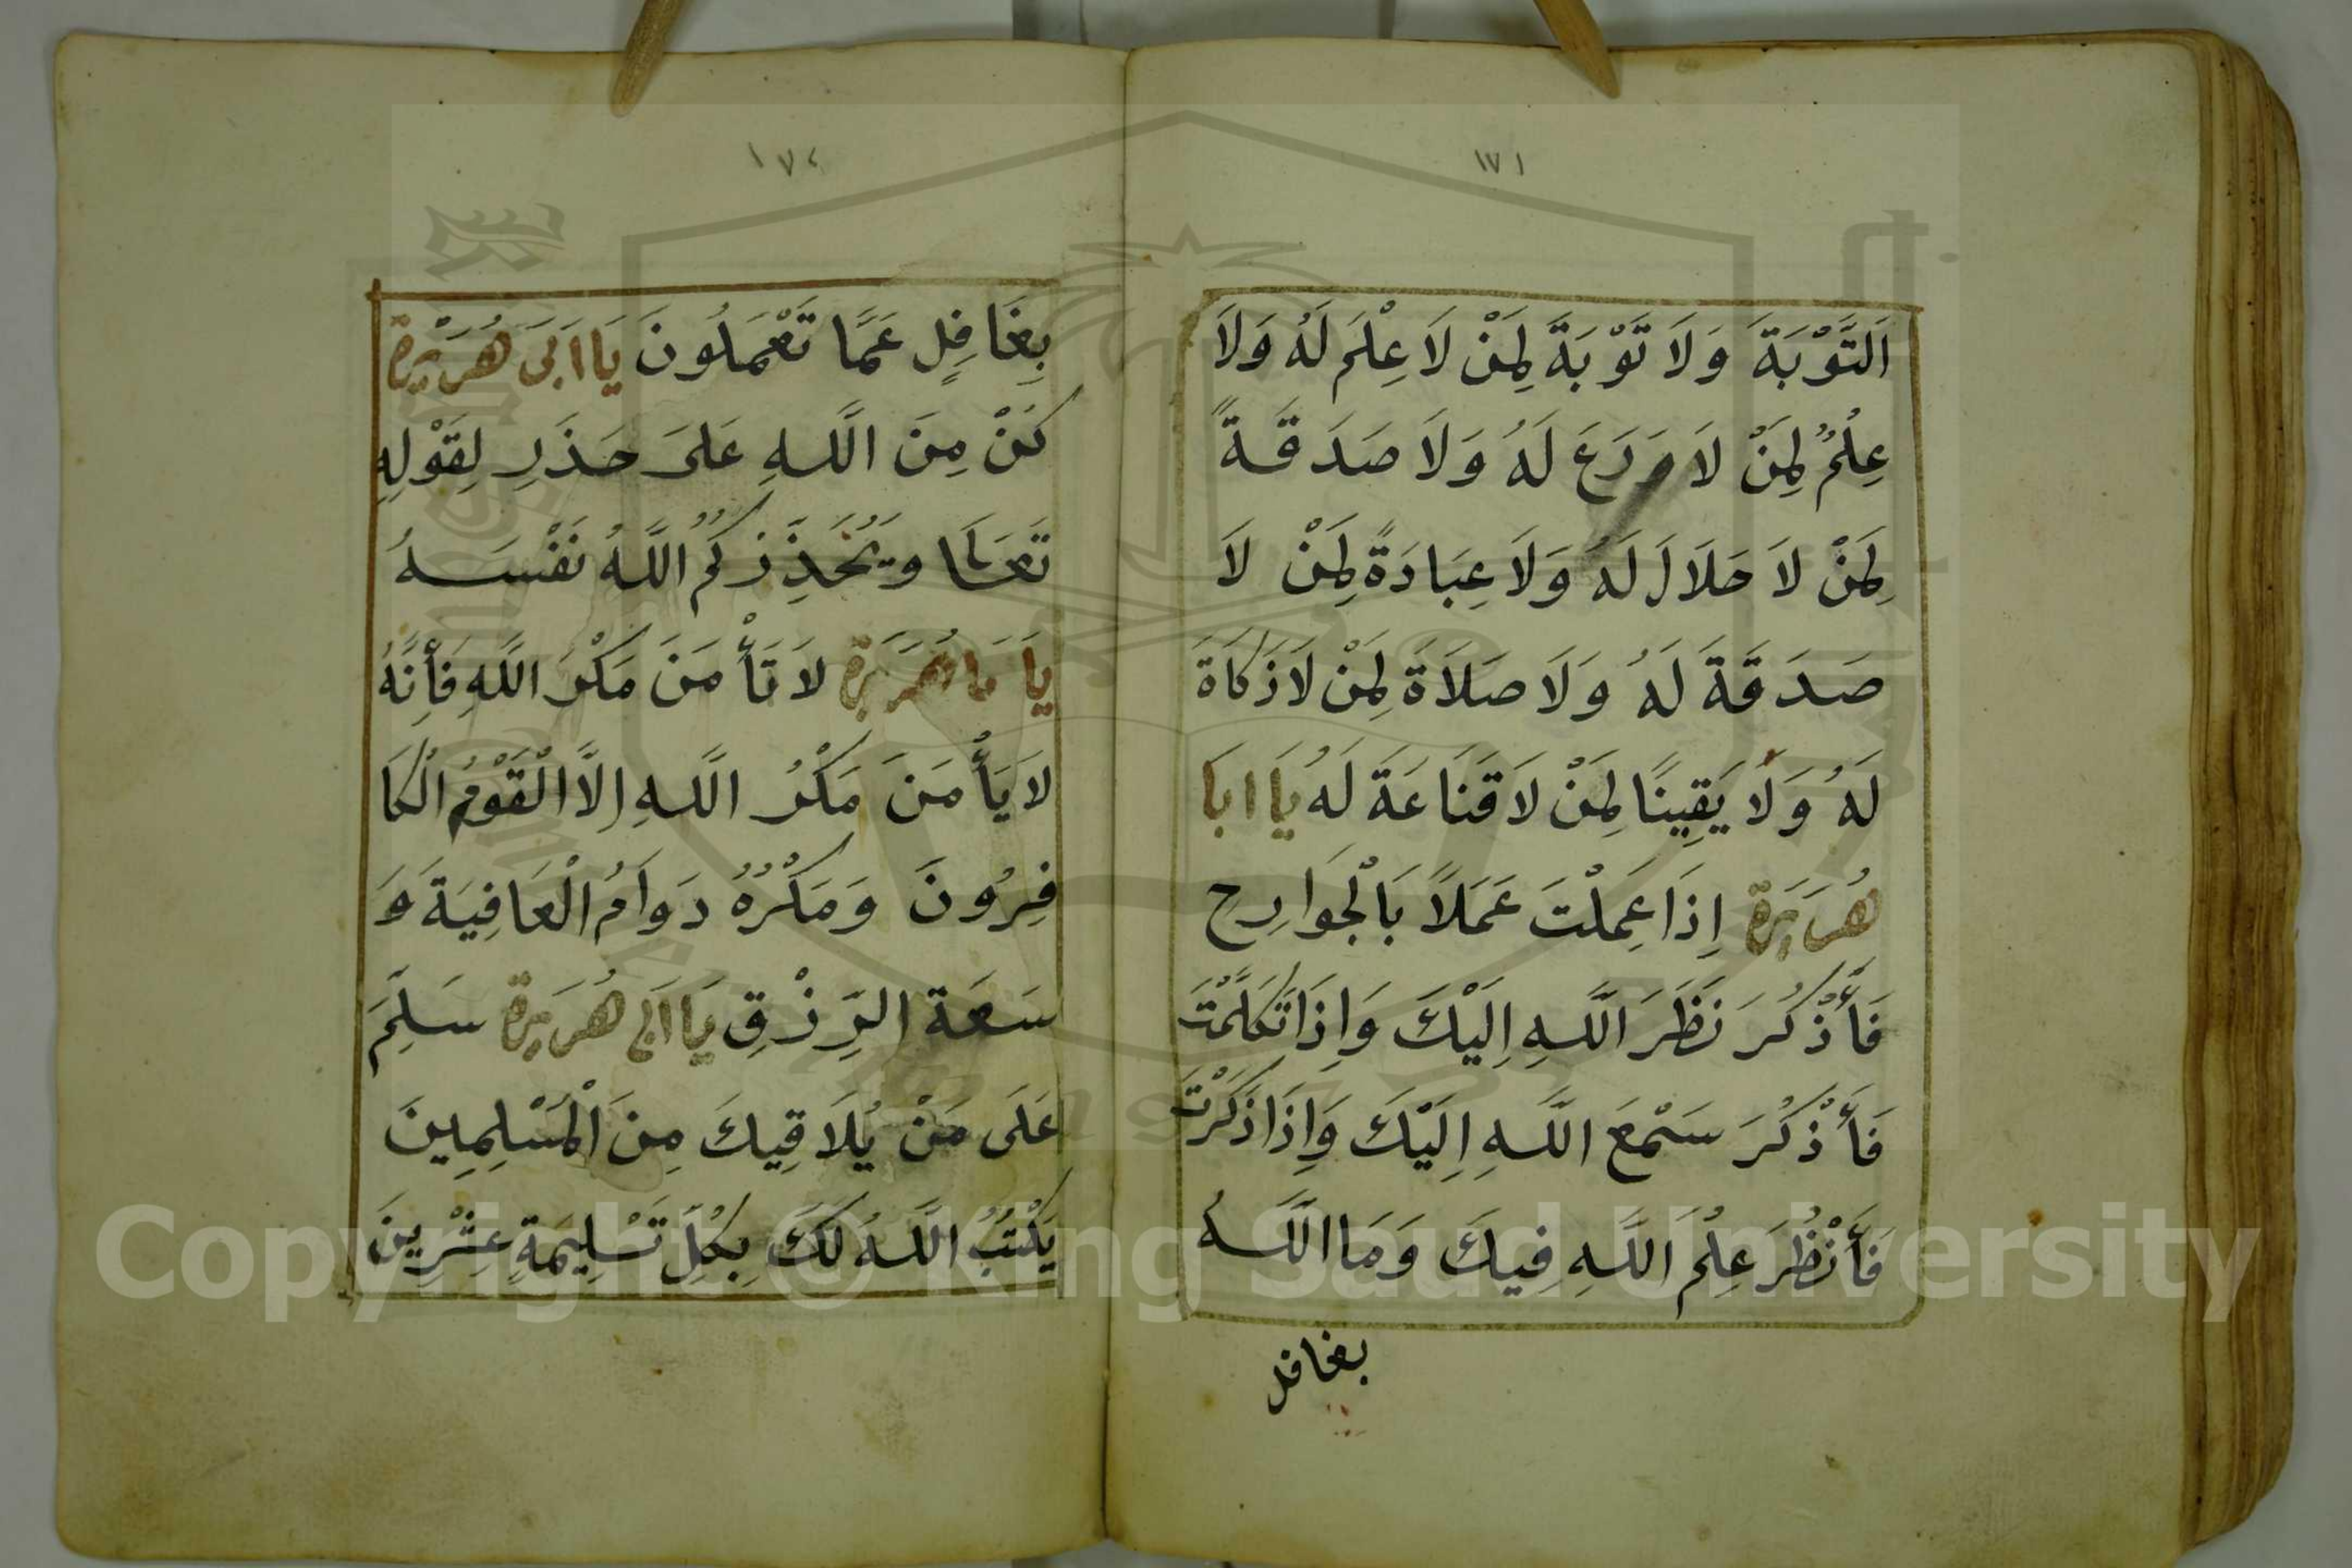 ١٧١
اَلتَّوْبَةَ وَلَا تَوْبَةً لِمَنْ لَا عِلْمَ لَهُ وَلَا
عِلْمُ لِمَنْ لَا وَرَعَ لَهُ وَلَا صَدَقَةً
لِمَنْ لَا حَلَالَ لَهُ وَلَا عِبَادَةً لِمَنْ لَا
صَدَقَةَ لَهُ وَلَا صَلَاةَ لِمَنْ لَا زَكَاةَ
لَهُ وَلَا يَقِينًا لِمَنْ لَا قَنَاعَةَ لَهُ يَا ابَا
هُرَيَرَة إِذَا عَمِلْتَ عَمَلاً بَالْجَوَارِحِ
فَأَذْكُرَ نَظَرَ اللَّهِ اِلَيْكَ وَاِذَا تَكَلَّمْتَ
فَأَذْكُرَ سَمْعَ اللَّهِ اِلَيْكَ وَاِذَا ذَكَرْتَ
فَأَنْظُرَ عِلْمَ اللَّهِ فِيكَ وَمَا اللَّهُ
بغافل
١٧٢
بِغَافِلٍ عَمَّا تَعْمَلُونَ يَا اَبَى هُرَيْرَة
كُنْ مِنَ اللَّهِ عَلَى حَذَرِ لِقَوْلِهِ
تَعَالَا وَيُحَذِّرُكُمُ اللَّهُ نَفْسَهُ
يَا بَا هُرَيَرَة لَا تَأْمَنَ مَكْرَ اللَّهِ فَأِنَّهُ
لَا يَأْمَنَ مَكْرُ اللَّهِ اِلَّا الْقَوْمُ الْكَا
فِرُونَ وَمَكْرُهُ دَوَامُ الْعَافِيَةَ وَ
سَعَة الرِّزْقِ يَا اَبِى هُرَيَرَة سَلِّمَ
عَلَى مَنْ يُلَاقِيكَ مِنَ الْمُسْلِمِينَ
يَكْتُبُ اللَّهُ لَكَ بِكُلِّ تَسْلِيمَةٍ عِشْرِينَ
Copyright © King Saud University